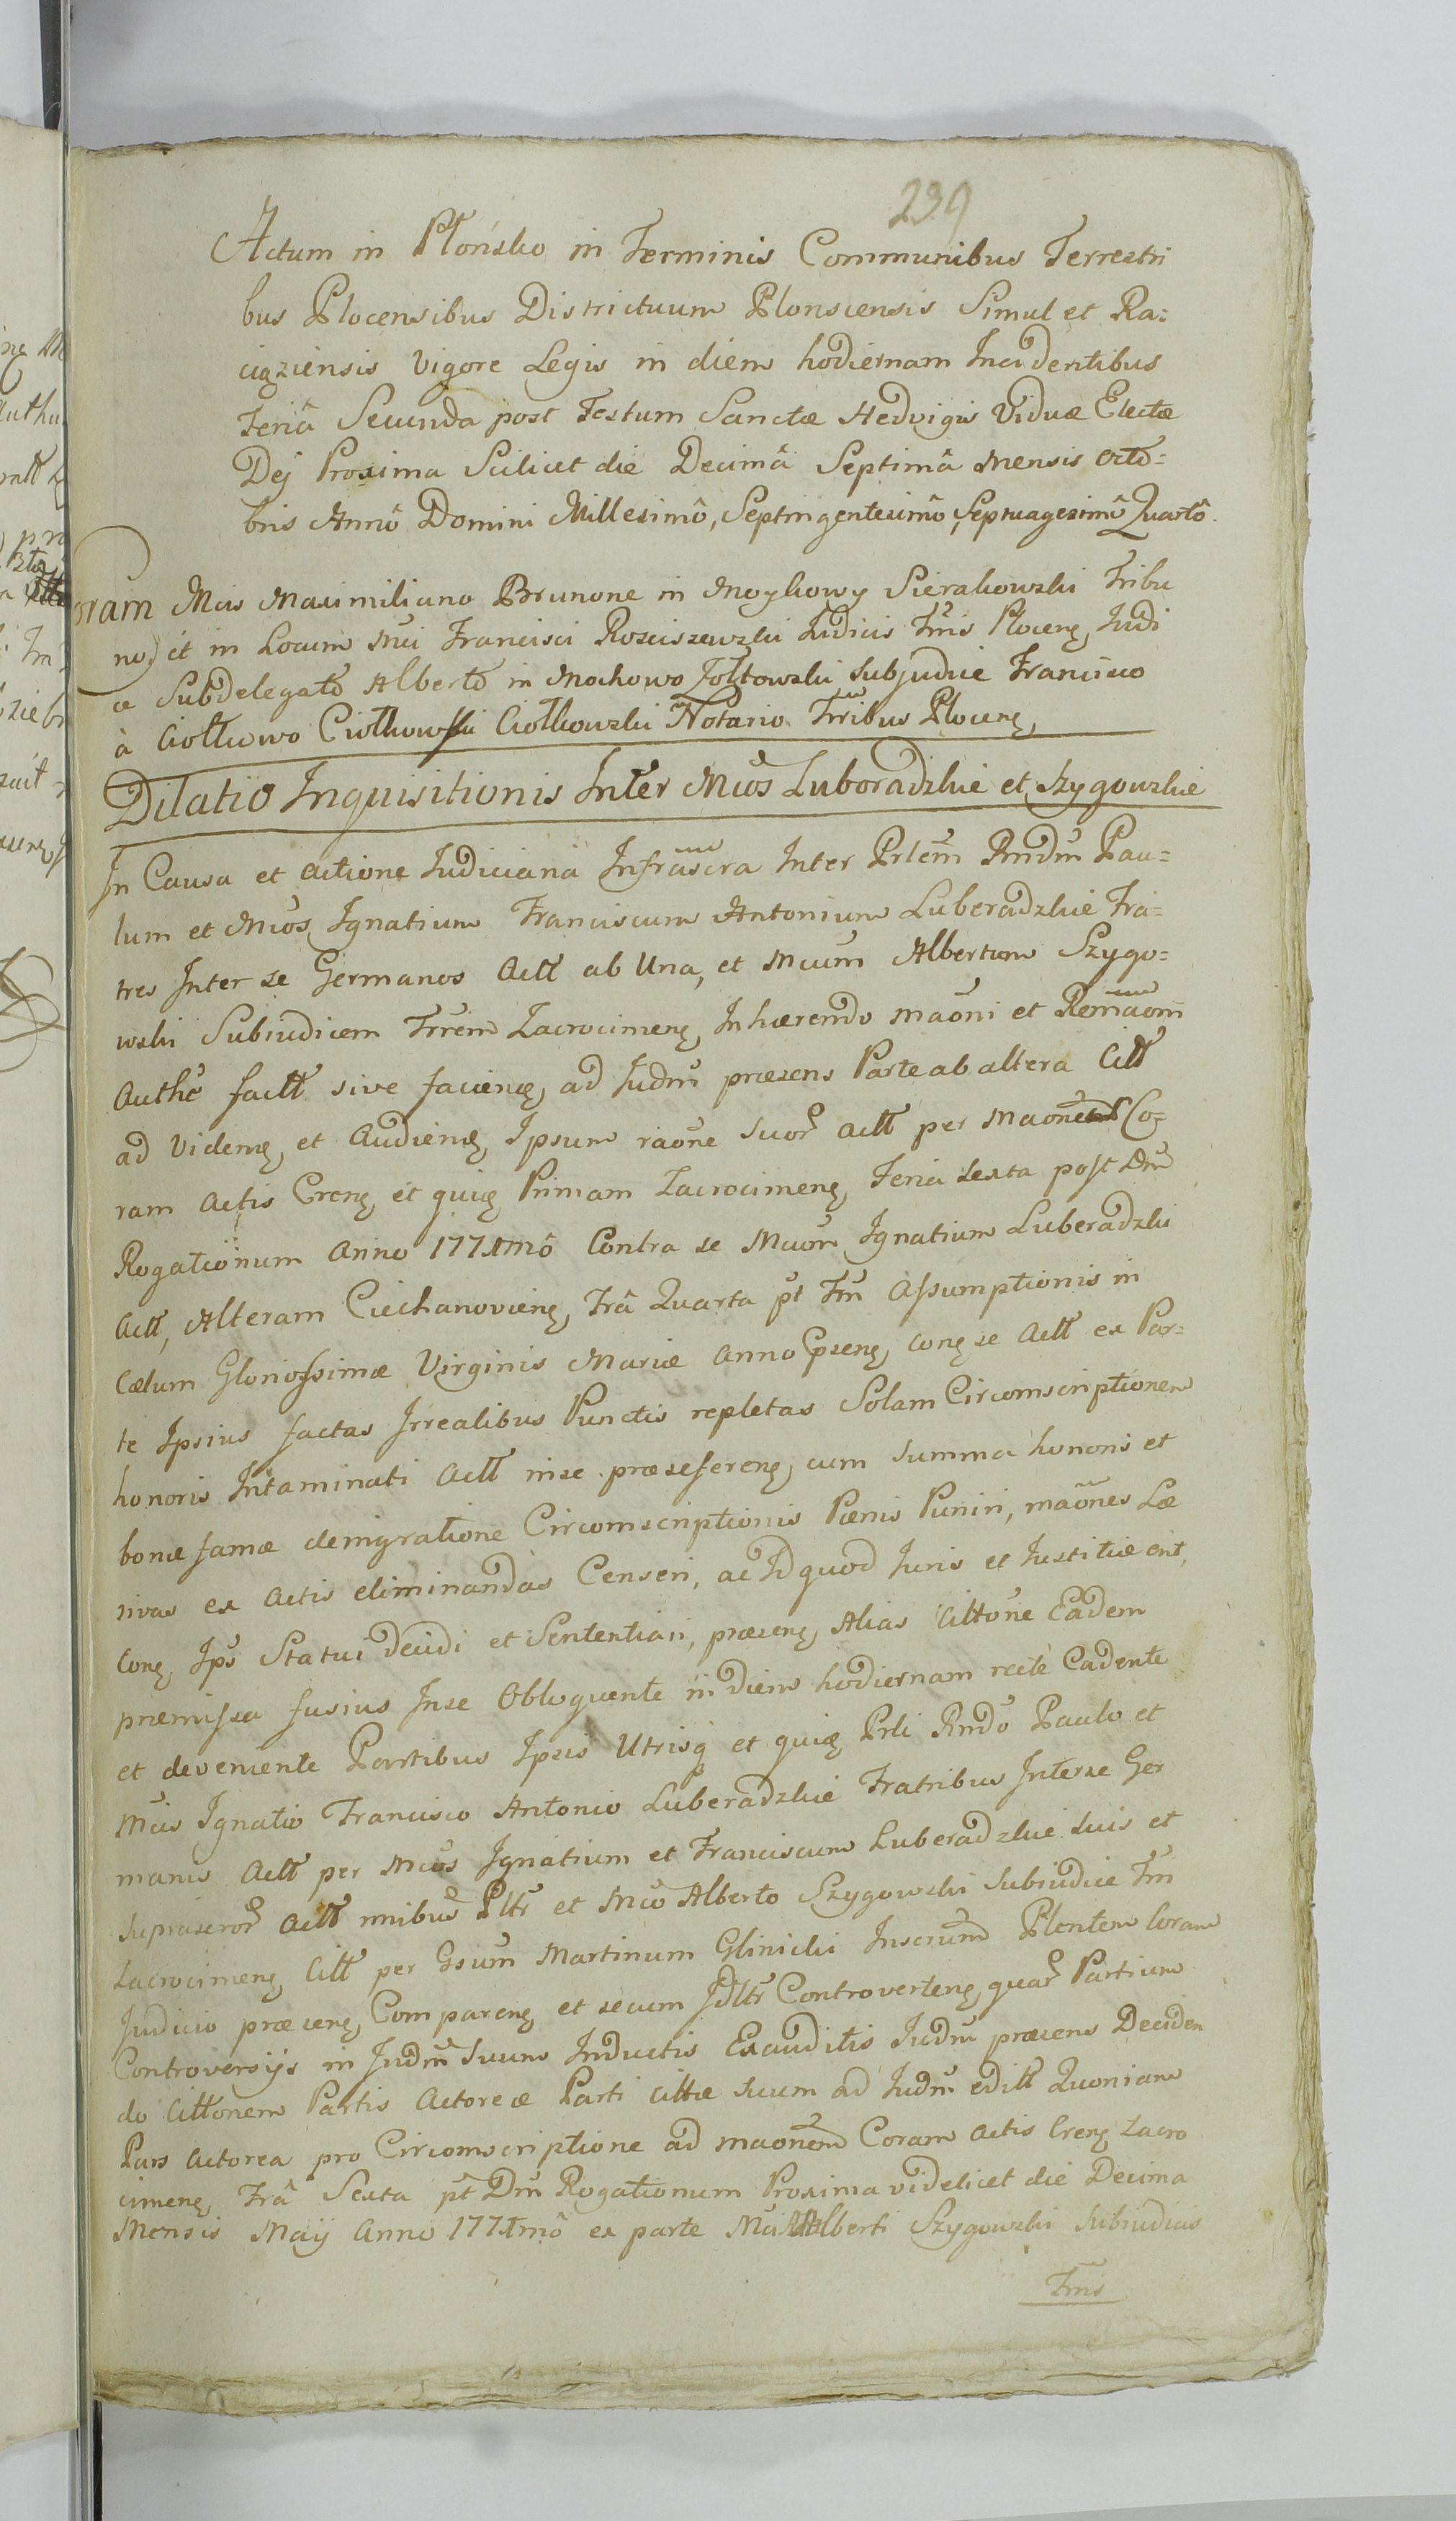 239
Actum in Płońsko in Terminis Communibus Terrestri
bus Plocensibus Districtuum Plonscensis Simul et Ra=
ciąziensis vigore Legis in diem hodiernam Incidentibus
Feriâ Secunda post Festum Sanctæ Hedvigis Viduæ Electæ
Dej Proxima Scilicet die Decimâ Septimâ Mensis Octo=
bris Annô Domini Millesimô, Septingentesimô, Septuagesimô Quartô.
oram Mcis Maximiliano Brunone in Mogkowy Sierakowski Tribu
no, et in Locum Mci Francisci Rosciszewzki Judicis Trris Ploceng, Judi
ce Subdelegato Alberto in Mochowo Żołtowski Subjudice Francisco
à Ciołkowo Ciołkowski Ciołkowzki Notario Trribus Ploceng,
Dilatio Inquisitionis Inter Mcos Luboradzkie et Szygowzkie
In Causa et actione Judiciaria Infrascra Inter Prlem Rndm Pau=
lum et Mcos Ignatium Franciscum Antonium Luberadzkie Fra=
tres Inter se Germanos Actt ab Una, et Mcum Albertum Szygo=
wski Subiudicem Trrem Zacrocimeng, Inhærendo maoni et Remaoni
Authe factt sive facieng, ad Judm præsens Parte ab altera Citt
ad Videng, et Audieng, Ipsum raone suor actt per Maones Co=
ram Actis Creng, et quig Primam Zacrocimeng, Feria Sexta post Dm
Rogationum Anno 1771mô Contra se Mcum Ignatium Luberadzki
Actt, Alteram Ciechanovieng, Frâ Quarta pt Fm Assumptionis in
Cælum Gloriossimæ Virginis Mariæ Anno Præseng, Cong se Actt ex Par=
te Ipsius factas Irrealibus Punctis repletas Solam Circomscriptionem
honoris Intaminati Actt inse præsefereng, cum Summa honoris et
bonæ famæ denigratione Circomscriptionis Pænis Puniri, maones Læ
sivas ex Actis eliminandas Censeri, ac Id quod Juris et Justitiæ erit,
Cong, Ips Statui decidi et Sententiari, præseng, Alias Cittone Eadem
præmissa fusius Inse Obloquente in diem hodiernam recte Cadente
et deveniente Partibus Ipsis Utrisq et quig Prli Rndo Paulo et
Mcis Ignatio Francisco Antonio Luberadzkie Fratribus Interse Ger
manis Actt per Mcos Ignatium et Franciscum Luberadzkie suis et
suprascror actt nnibus Pltr et Mco Alberto Szygowzki Subiudice Trri
Zacrocimeng, Citt per Gsum Martinum Glinicki Inscrum Plentem Coram
Judicio præseng, Compareng, et secum Jdltr Controverteng, quar Partium
Controversijs in Judm Suum Inductis Exauditis Judm præsens Deciden
do Cittonem Partis Actoreæ Parti Cittæ Suum ad Judm editt Quoniam
Pars Actorea pro Circomscriptione ad maonem Coram Actis Creng Zacro
cimeng, Frâ Sexta pt Dm Rogationum Proxima videlicet die Decima
Mensis Maij Anno 1771mô ex parte Mci Alberti Szygowzki Subiudicis
Trris